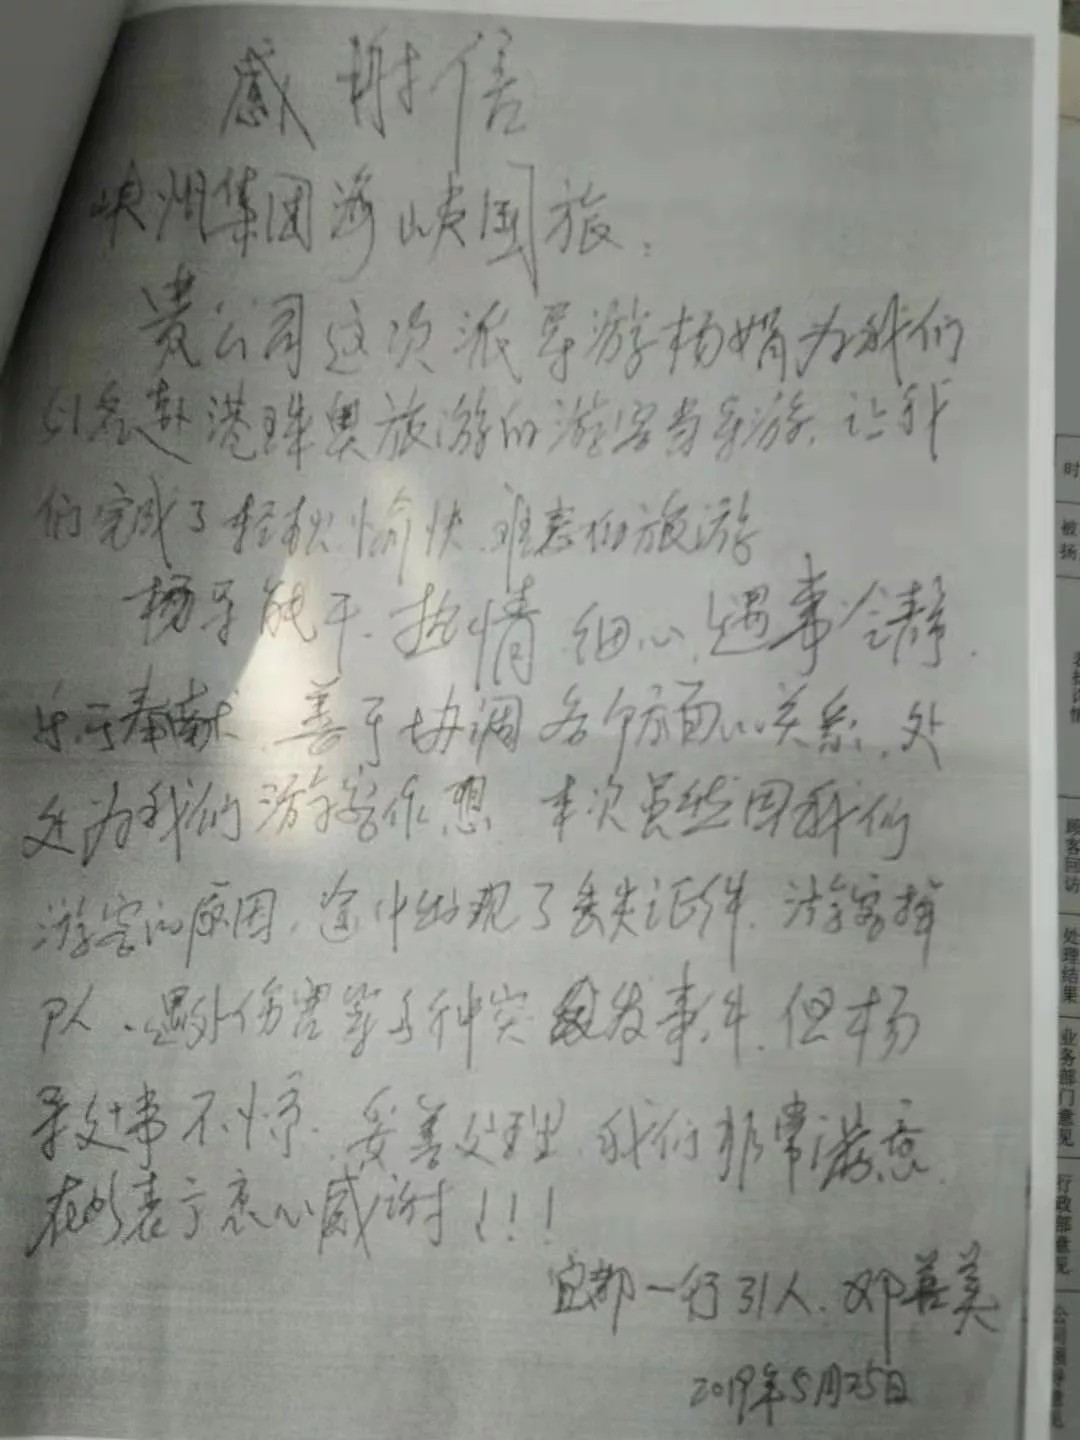 感谢信
峡州集团海峡国旅：
贵公司这次派导游杨娟为我们
51名赴港珠奥旅游的游客当导游，让我
们完成了轻松、愉快、难忘的旅游
杨导能干、热情、细心、遇事冷静、
乐于奉献、善于协调各个方面的关系，处
处为我们游客作想 本次虽然因我们
游客的原因，途中出现了丢失证件、游客掉
队、意外伤害等多种突发事件，但杨
导处事不惊、妥善处理，我们非常满意
在此表示衷心感谢！！！
宜都一行51人、邓甚美
2019年5月25日
时
被
扬
顾客回访
处理结果
业务部门意见
行政部意见